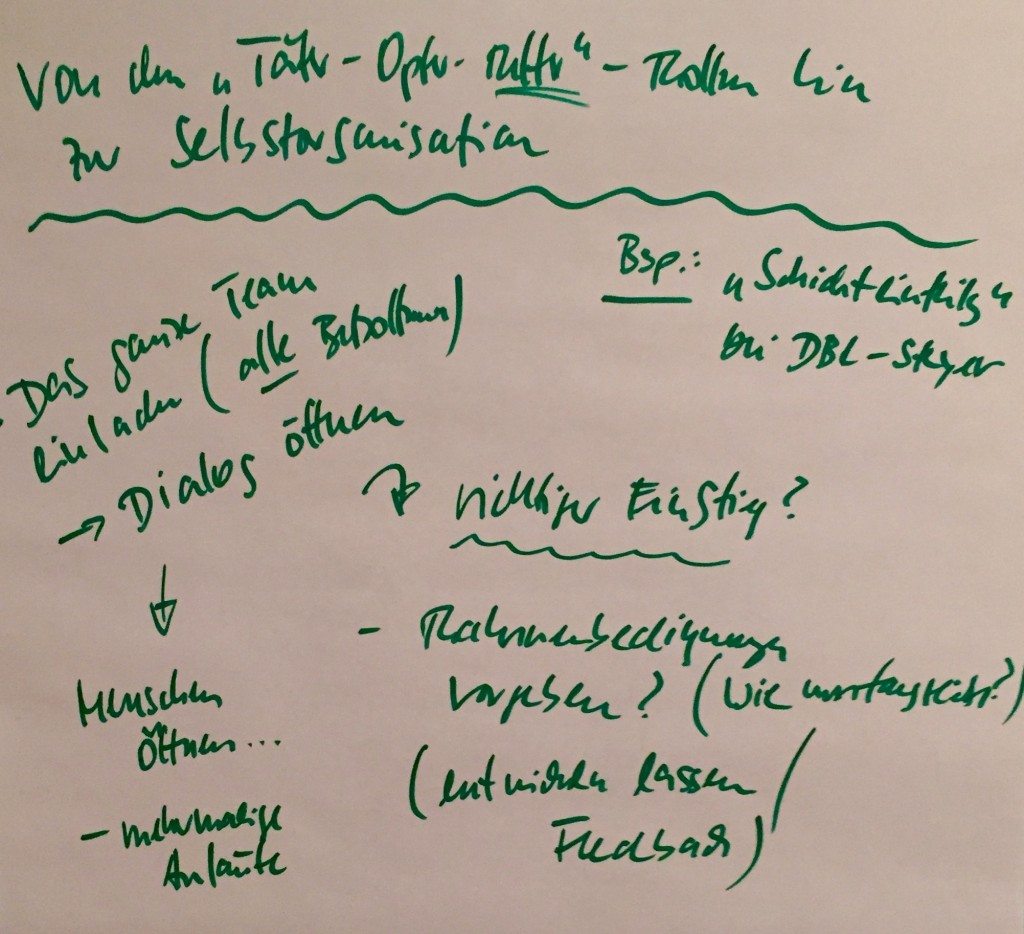 Von den „Täter-Opfer-Retter"-Rollen hin
zur Selbstorganisation
Bsp.: „Schichteinteilung"
bei DBL-Steyer
- Das ganze Team
einladen (alle Betroffenen)
→ Dialog öffnen
↓
Menschen
öffnen...
- mehrmalige
Anläufe
richtiger Einstieg?
- Rahmenbedingungen
vorgeben? (Wie umfangreich?)
(entwickeln lassen /
Feedback)